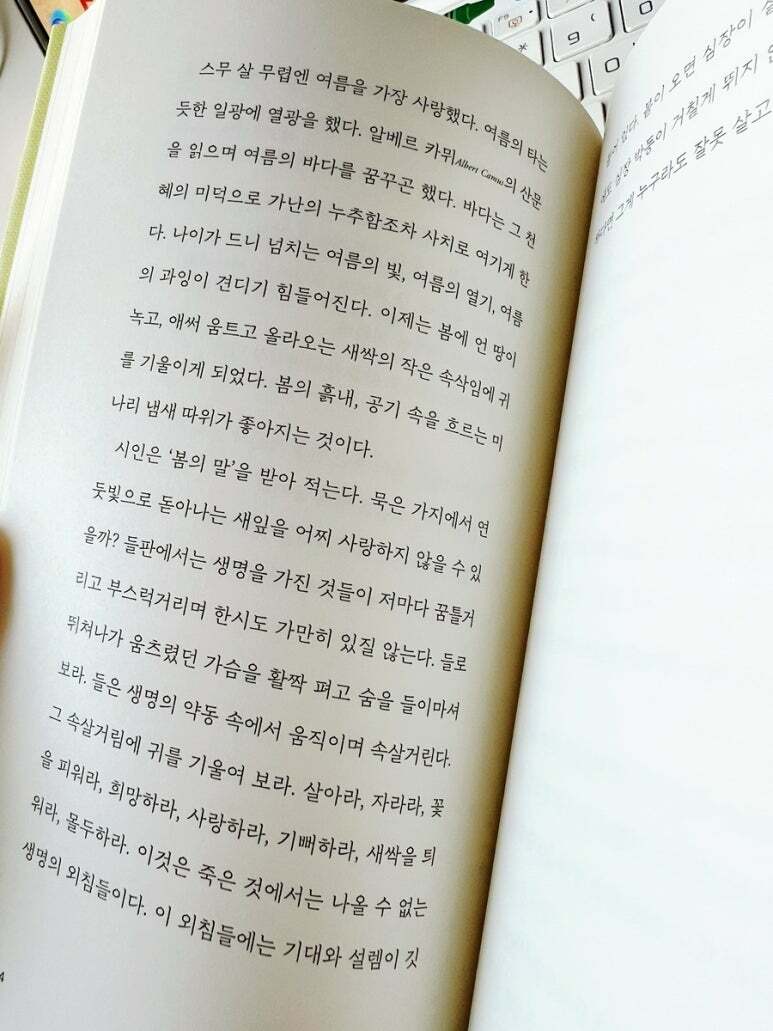 스무 살 무렵엔 여름을 가장 사랑했다. 여름의 타는
듯한 일광에 열광을 했다. 알베르 카뮈Albert Camus의 산문
을 읽으며 여름의 바다를 꿈꾸곤 했다. 바다는 그 천
혜의 미덕으로 가난의 누추함조차 사치로 여기게 한
다. 나이가 드니 넘치는 여름의 빛, 여름의 열기, 여름
의 과잉이 견디기 힘들어진다. 이제는 봄에 언 땅이
녹고, 애써 움트고 올라오는 새싹의 작은 속삭임에 귀
를 기울이게 되었다. 봄의 흙내, 공기 속을 흐르는 미
나리 냄새 따위가 좋아지는 것이다.
시인은 ‘봄의 말’을 받아 적는다. 묵은 가지에서 연
둣빛으로 돋아나는 새잎을 어찌 사랑하지 않을 수 있
을까? 들판에서는 생명을 가진 것들이 저마다 꿈틀거
리고 부스럭거리며 한시도 가만히 있질 않는다. 들로
뛰쳐나가 움츠렸던 가슴을 활짝 펴고 숨을 들이마셔
보라. 들은 생명의 약동 속에서 움직이며 속살거린다.
그 속살거림에 귀를 기울여 보라. 살아라, 자라라, 꽃
을 피워라, 희망하라, 사랑하라, 기뻐하라, 새싹을 틔
워라, 몰두하라. 이것은 죽은 것에서는 나올 수 없는
생명의 외침들이다. 이 외침들에는 기대와 설렘이 깃
4
있다. 봄이 오면 심장이
심장 박동이 거칠게 뛰지
그게 누구라도 잘못 살고
9